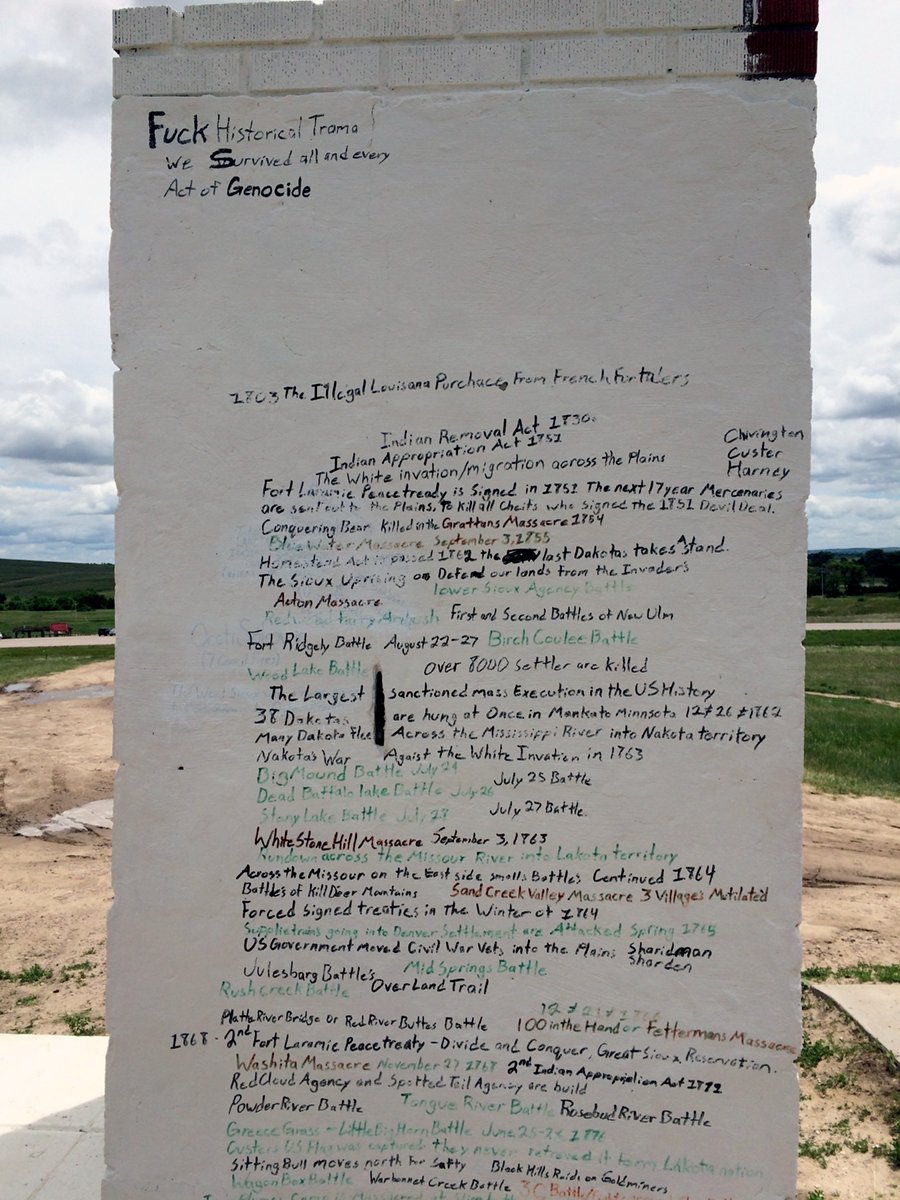 Fuck Historical Trama
We Survived all and every
Act of Genocide
1803 The Illegal Louisana Purchace From French Furtalers
Indian Removal Act 1830.
Indian Appropriation Act 1851
Chivington
Custer
Harney
The White invation/migration across the Plains
Fort Laramie Peacetready is Signed in 1851 The next 17 year Mercenaries
are sent out to the Plains, To kill all Cheifs who signed the 1851 Devil Deal.
Conquering Bear killed in the Grattans Massacre 1854
Blue Water Massacre September 3, 1855
Homestead Act is passed 1862 the last Dakotas takes A stand.
The Sioux Uprising or Defend our lands from the Invader's
lower Sioux Agency Battle
Acton Massacre
Redwood Ferry Ambush First and Second Battles of New Ulm
Fort Ridgely Battle August 22-27 Birch Coulee Battle
Wood Lake Battle over 8000 settler are killed
The Largest sanctioned mass Execution in the US History
38 Dakotas are hung at Once in Mankato Minnsota 12 26 1862
Many Dakota flee Across the Mississippi River into Nakota territory
Nakota's War Agaist the White Invation in 1763
Big Mound Battle July 24 July 25 Battle
Dead Buffalo lake Battle July 26
Stony Lake Battle July 28 July 27 Battle.
White Stone Hill Massacre September 3, 1763
Rundown across the Missour River into Lakota territory
Across the Missour on the East side smalls Battles Continued 1864
Battles of Kill Deer Mountains Sand Creek Valley Massacre 3 Villages Mutilated
Forced signed treaties in The Winter of 1764
Supplie trains going into Denver Settlement are Attacked Spring 1765
US Government moved Civil War Vets into the Plains Sharidman
Sharden
Julesburg Battle's Mid Springs Battle
Rush Creek Battle Over Land Trail
Platte River Bridge or Red River Buttes Battle 100 in the Hand or Fettermans Massacre
1868 - 2nd Fort Laramie Peacetreaty - Divide and Conquer, Great Sioux Reservation.
Washita Massacre November 27 1868 2nd Indian Appropiation Act 1871
Red Cloud Agency and Spotted Tail Agency are build
Powder River Battle Tongue River Battle Rosebud River Battle
Greece Grass - Little Big Horn Battle June 25-26 1876
Custers US Flag was captured they never retreved it form Lakota nation
Sitting Bull moves north for Safty Black Hills Raids on Goldminers
Wagon Box Battle Warbonnet Creek Battle